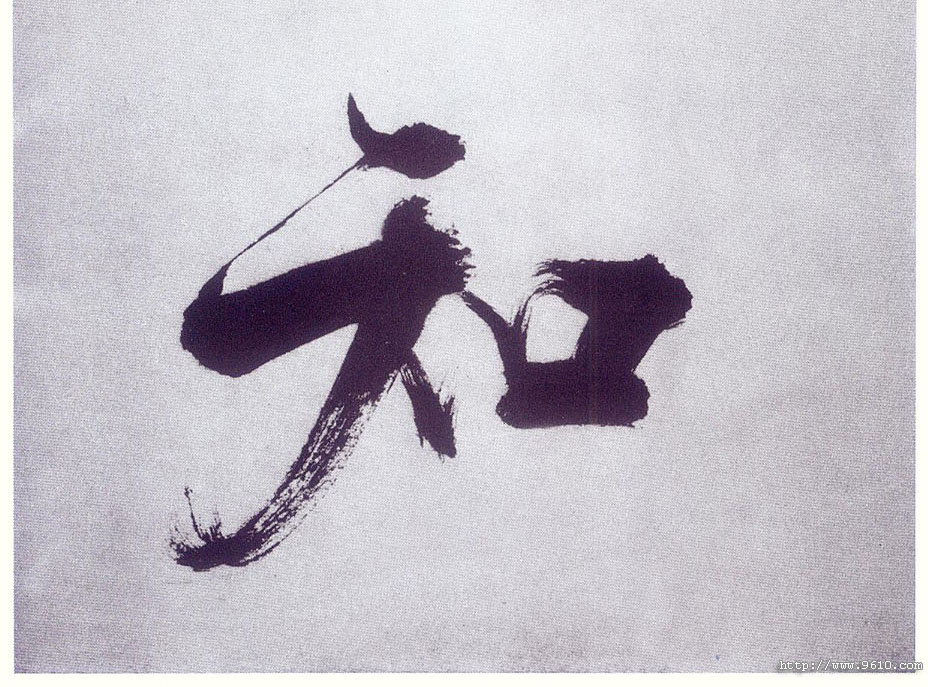 知
http://www.9610.com